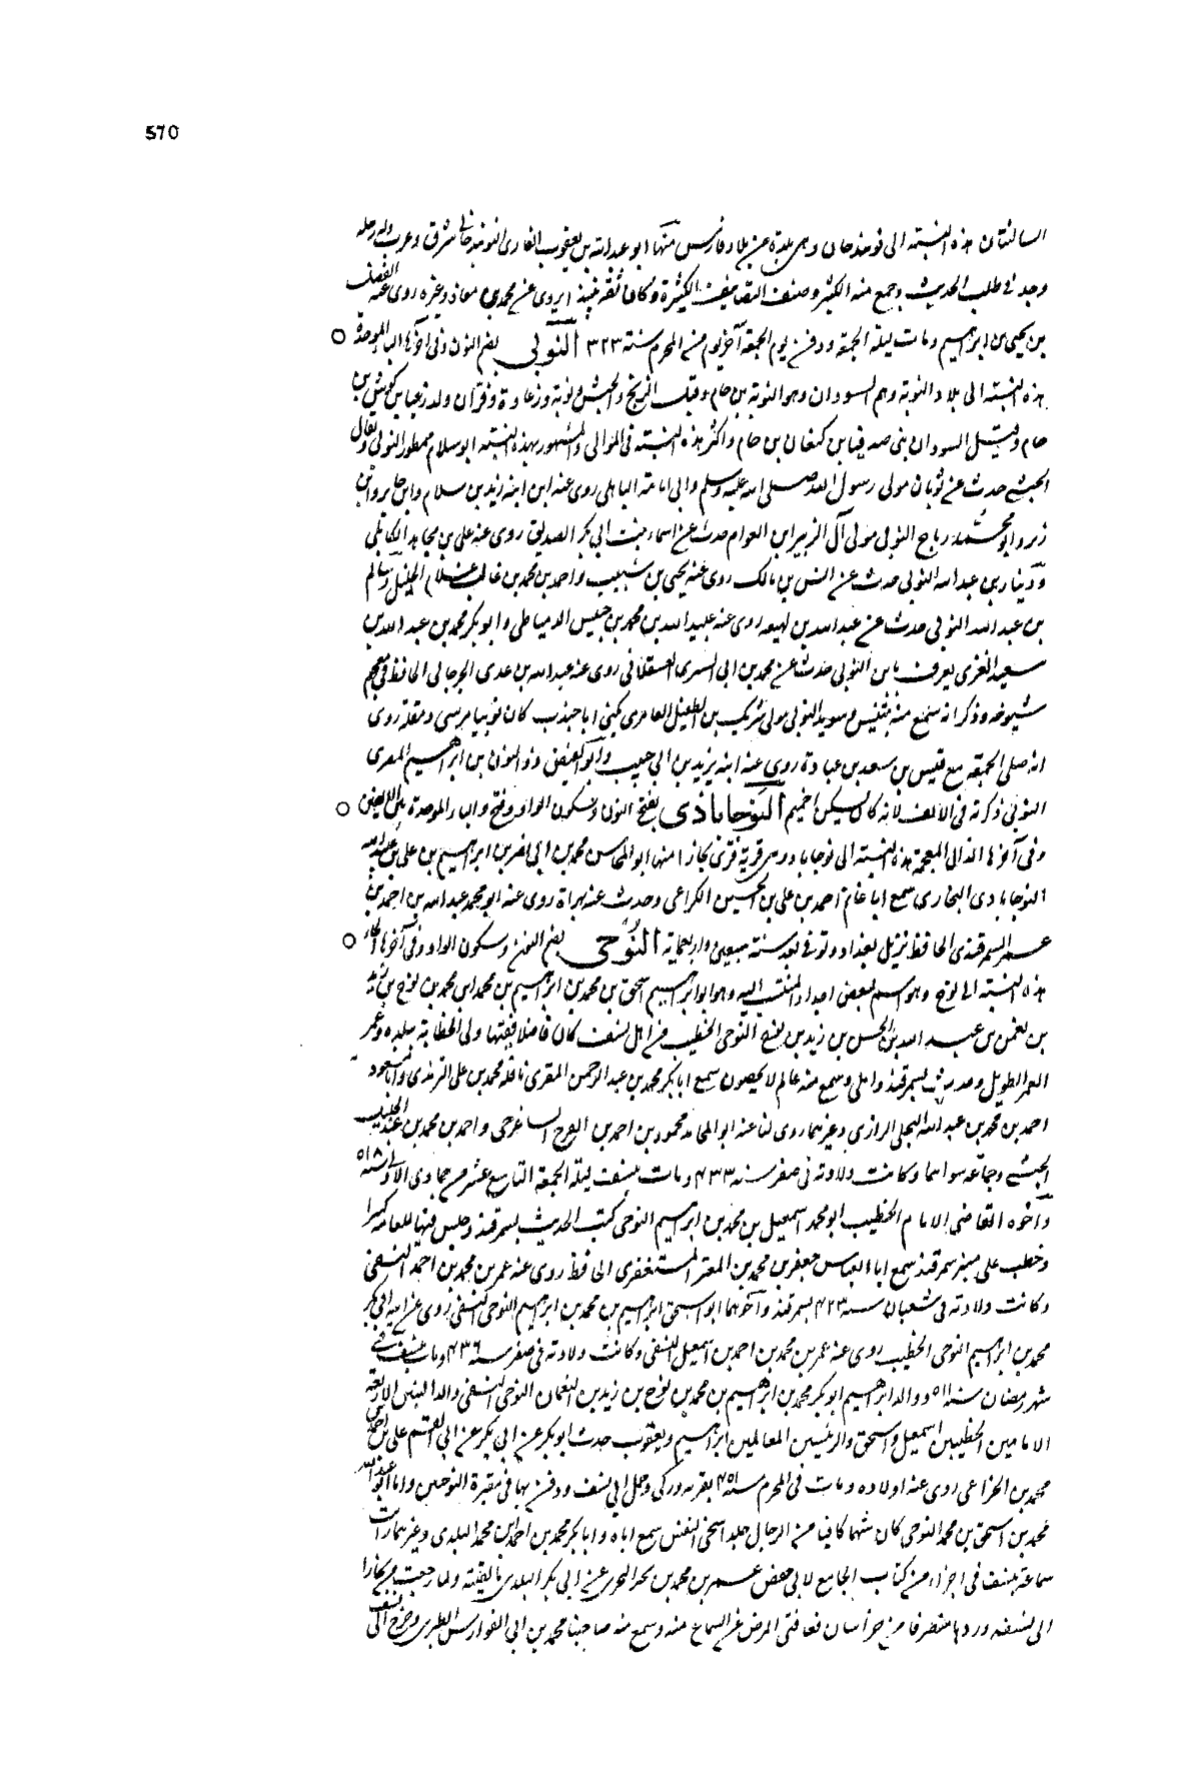 570
الساكنتان هذه النسبة الى نوبندجان وهى بلدة من بلاد فارس منها ابو عبد الله بن يعقوب الفارسى النوبندجانى شرق وغرب وله رحلة
وجد فى طلب الحديث وجمع منه الكثير وصنف التصانيف الكثيرة وكان ثقة يروى عن محمد بن معاذ وغيره روى عنه الفضل
بن يحيى بن ابراهيم ومات ليلة الجمعة ودفن يوم الجمعة آخر يوم من المحرم سنة ٣٢٣ النوبى بضم النون وفى آخرها الباء الموحدة
هذه النسبة الى بلاد النوبة وهم السودان وهو النوبة بن حام وقيل الزنج والحبش ونوبة وزغاوة وفزان ولد زغيا بن كوش بن
حام وقيل السودان بنى صدقيا بن كنعان بن حام واكثر هذه النسبة فى الموالى والمشهور بهذه النسبة ابو سلام ممطور النوبى ويقال
الحبشى حدث عن ثوبان مولى رسول الله صلى الله عليه وسلم وابى امامة الباهلى روى عنه ابن ابنه زيد بن سلام وابن جابر وابن
زبر وابو محمد رباح النوبى مولى آل الزبير ابن العوام حدث عن اسماء بنت ابى بكر الصديق روى عنه على بن مجاهد الكابلى
ودينار بن عبد الله النوبى حدث عن انس بن مالك روى عنه يحيى بن شبيب واحمد بن محمد بن غالب غلام الخليل وسالم
بن عبد الله النوبى حدث عن عبد الله بن لهيعه روى عنه عبيد الله بن محمد بن خنيس الدمياطى وابو بكر محمد بن عبد الله بن
سعيد الغزى يعرف بابن النوبى حدث عن محمد بن ابى السرى العسقلانى روى عنه عبد الله بن عدى الجرجانى الحافظ فى معجم
شيوخه وذكر انه سمع منه بتنيس وسويد النوبى مولى شريك بن الطفيل العامرى كنى ابا حبيب كان نوبيا من سبى دمقلة روى
انه صلى الجمعة مع قيس بن سعد بن عبادة روى عنه ابنه يزيد بن ابى حبيب وابو الفيض ذو النون بن ابراهيم المصرى
النوبى ذكرته فى الالف لانه كان يسكن اخميم النوجاباذى بفتح النون وسكون الواو وفتح والباء الموحدة بين الالفين
وفى آخرها الذال المعجمة هذه النسبة الى نوجاباد وهى قرية من قرى بخارا منها ابو المحاسن محمد بن ابى نصر بن ابراهيم بن على بن عبد الله
النوجابادى البخارى سمع ابا غانم احمد بن على بن الحسين الكراعى وحدث عنه بهراة روى عنه ابو محمد عبد الله بن احمد بن
عمر السمرقندى الحافظ نزيل بغداد وتوفى بعد سنة سبعين واربعماية النوحى بضم النون وسكون الواو وفى آخرها الحاء
هذه النسبة الى نوح وهو اسم لبعض اجداد المنتسب اليه وهو ابو ابراهيم اسحق بن محمد بن ابراهيم بن محمد ابن محمد بن نوح بن زيد
بن نعمن بن عبد الله بن الحسن بن زيد بن نوح النوحى الخطيب من اهل نسف كان فاضلا فقيها ولى الخطابة ببلده وعمر
العمر الطويل وحدث بسمرقند واملى وسمع منه عالم لا يحصون سمع ابا بكر محمد بن عبد الرحمن المقرى نافلة محمد بن على الترمذى وابا مسعود
احمد بن محمد بن عبد الله البجلى الرازى وغيرهما روى لنا عنه ابو المحامد محمود بن احمد بن الفرج الساغرجى واحمد بن محمد بن عبد الجليل
الخشبى وجماعة سواهما وكانت ولادته فى صفر سنة ٤٣٣ ومات بنسف ليلة الجمعة التاسع عشر من جمادى الاولى سنة ٥١٨
واخوه القاضى الامام الخطيب ابو محمد اسمعيل بن محمد بن ابراهيم النوحى كتب الحديث بسمرقند وجلس فيها للعامة كثيرا
وخطب على منبر سمرقند سمع ابا العباس جعفر بن محمد بن المعتز المستغفرى الحافظ روى عنه عمر بن محمد بن احمد النسفى
وكانت ولادته فى شعبان سنة ٤٢٣ بسمرقند واخوهما ابو اسحق ابراهيم بن محمد بن ابراهيم النوحى النسفى روى عن ابيه ابى بكر
محمد بن ابراهيم النوحى الخطيب روى عنه عمر بن محمد بن احمد بن اسمعيل النسفى وكانت ولادته فى صفر سنة ٤٣٦ ومات بنسف فى
شهر رمضان سنة ٥١١ ووالد ابراهيم ابو بكر محمد بن ابراهيم بن محمد بن نوح بن زيد بن النعمان النوحى النسفى والد البنين الاربعة
الامامين الخطيبين اسمعيل واسحق والرئيسين العالمين ابراهيم ويعقوب حدث ابو بكر عن ابى بكر عن ابى القسم على بن احمد بن
محمد بن الخزاعى روى عنه اولاده ومات فى المحرم سنة ٤٥١ بقرية وركى وحمل الى نسف ودفن بها فى مقبرة النوحيين واما ابو عبد الله
محمد بن اسحق بن محمد النوحى كان شهما كافيا من الرجال جلدا سخى النفس سمع اباه وابا بكر محمد بن احمد بن محمد البلدى وغيرهما رأيت
سماعه بنسف فى اجزاء من كتاب الجامع لابى حفص عمر بن محمد بن بحير البحيرى عن ابى بكر البلدى فالقيته ولما رجعت من بخارا
الى نسف وردها منصرفا من خراسان فعاقنى المرض عن السماع منه وسمع منه صاحبنا محمد بن ابى الفوارس الطبرى وخرج الى نسف